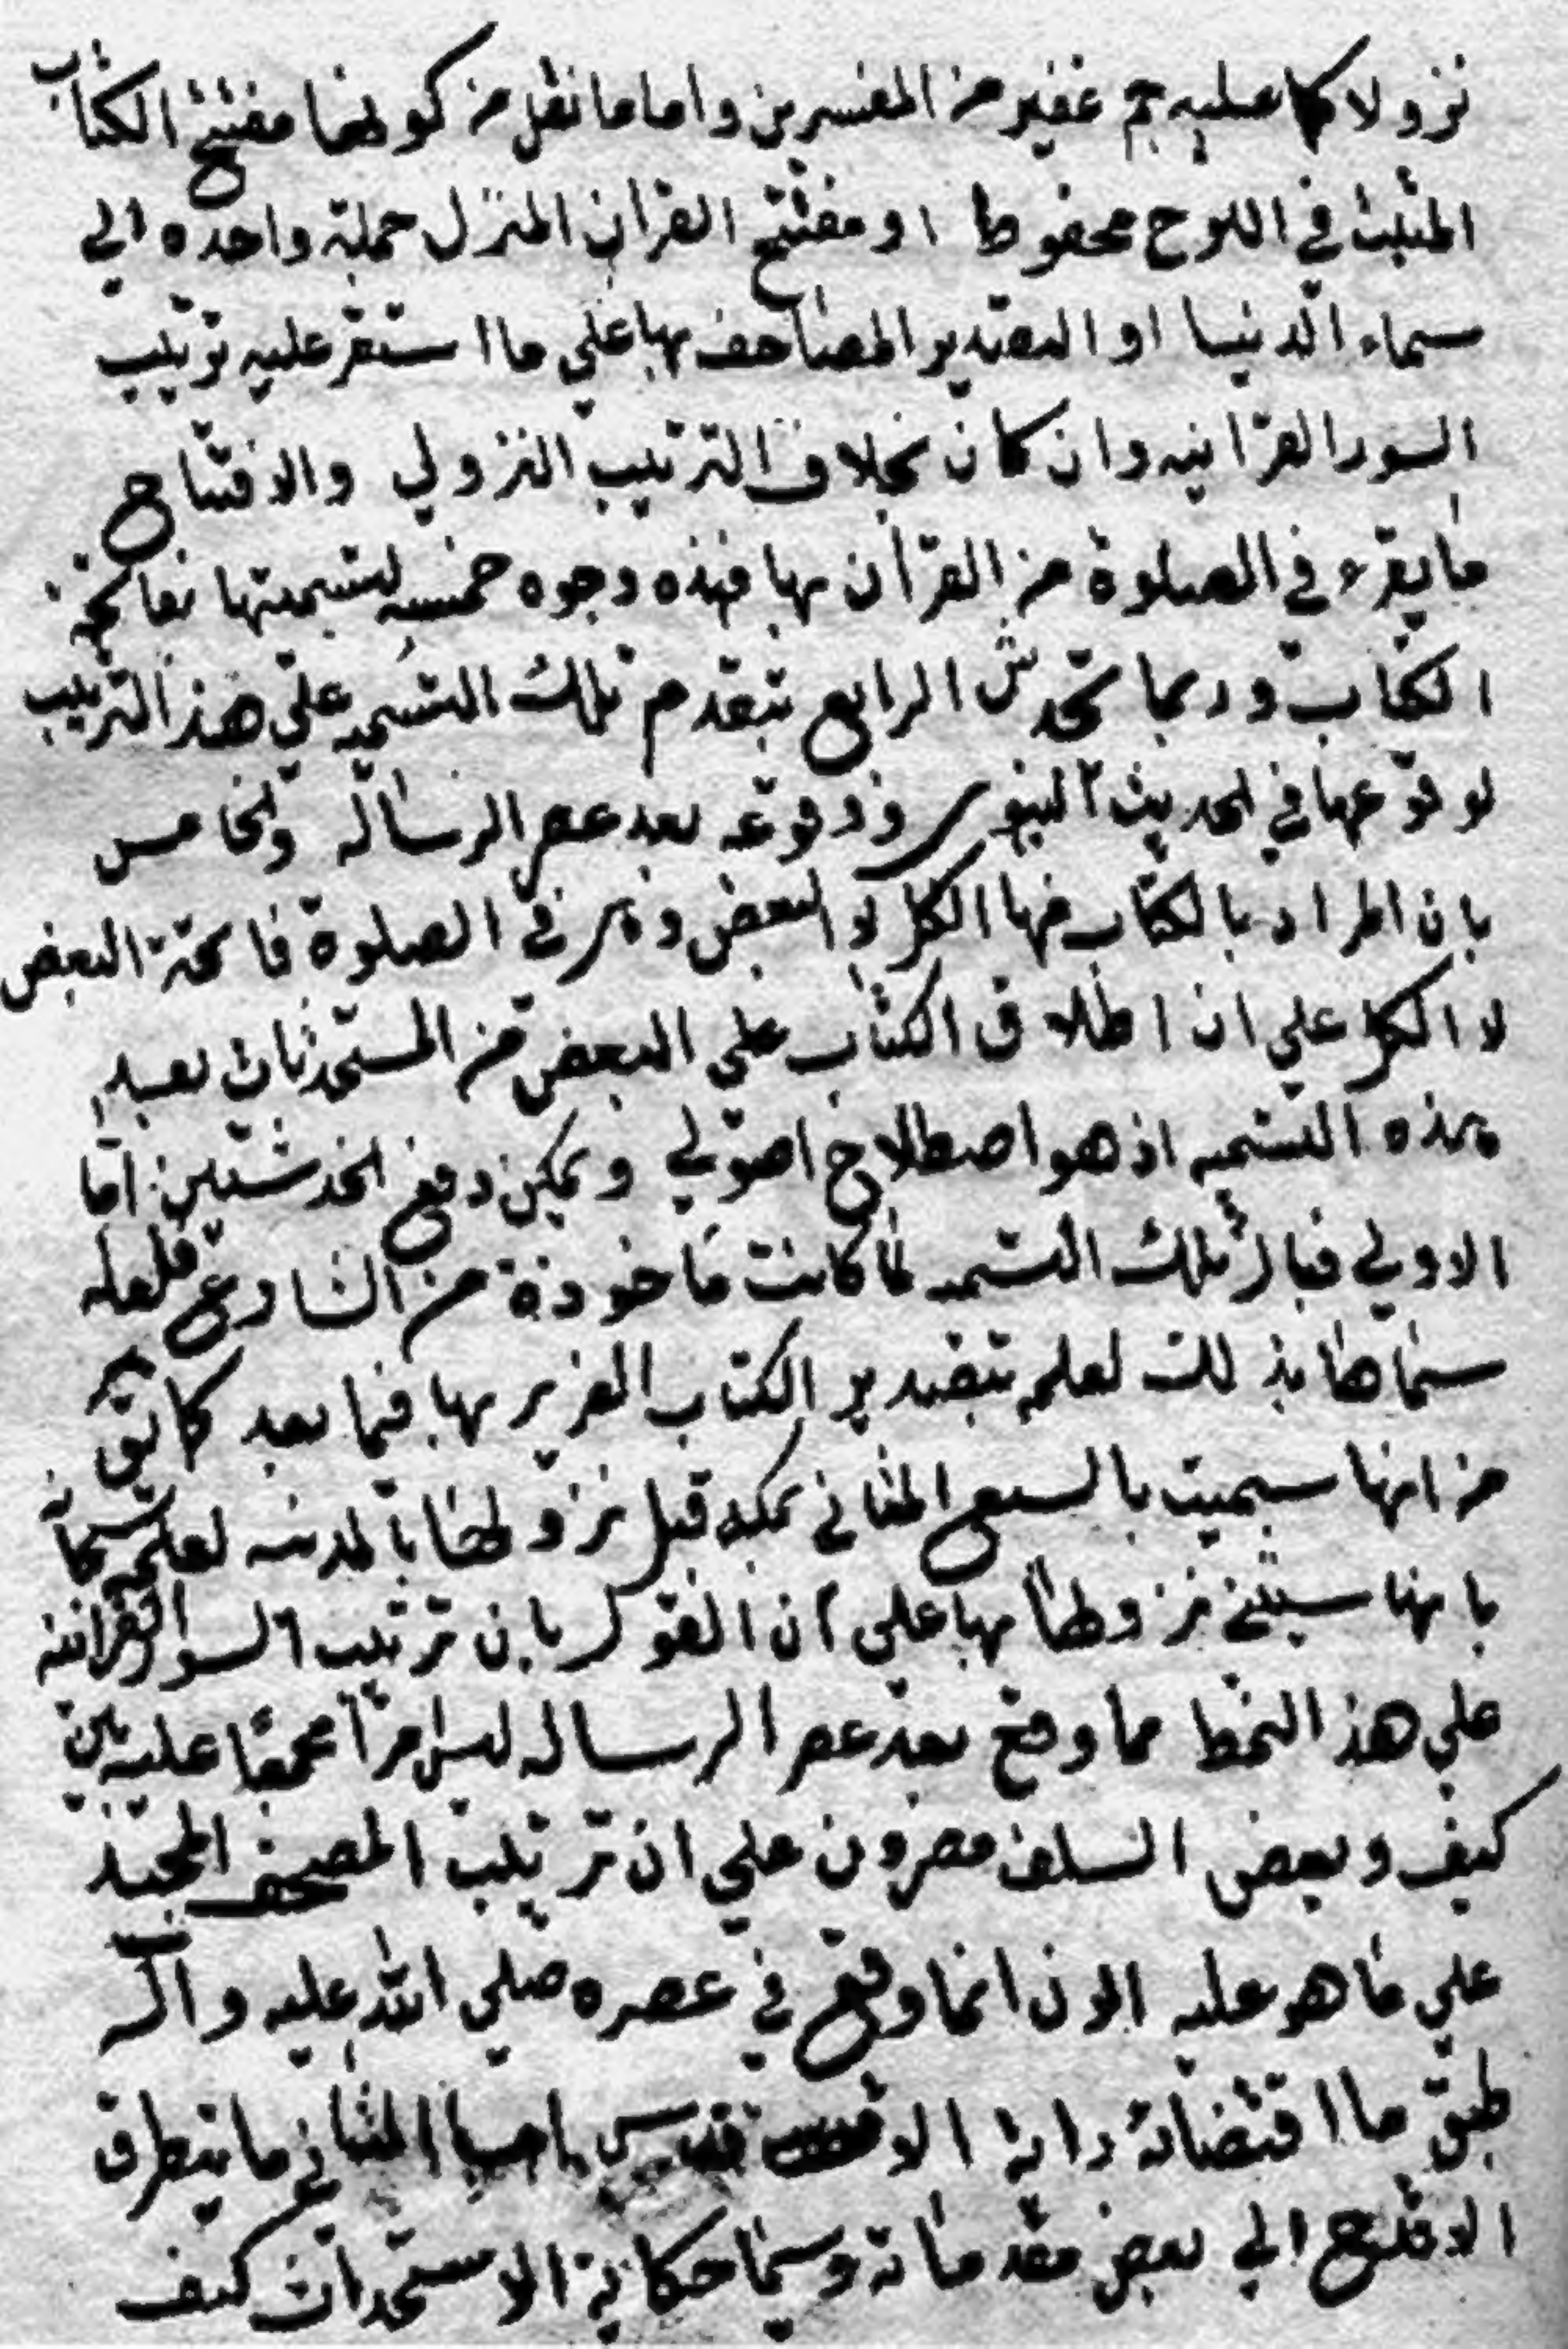 نزولا كما عليه جم غفير من المفسرين واما ما نقل من كونها مفتتح الكتاب
المثبت في اللوح محفوظ او مفتتح القران المنزل جملة واحده الي
سماء الدنيا او التصدير المصاحف بها علي ما استقر عليه ترتيب
السور القرانيه وان كان بخلاف الترتيب النزولي والافتتاح
ما يقرء في الصلوة من القرآن بها فهذه وجوه خمسه لتسميتها بفاتحة
الكتاب وربما تخدش الرابع بتقدم تلك التسميه علي هذا الترتيب
لوقوعها في الحديث النبوي و وقوعه بعد عصر الرساله والخامس
بان المراد بالكتاب فيها الكل لا البعض وهي في الصلوة فاتحة البعض
لا الكل علي ان اطلاق الكتاب علي البعض من المستحدثات بعد
هذه التسميه اذ هو اصطلاح اصولي ويمكن دفع الخدشتين اما
الاولي فبان تلك التسميه لما كانت ماخوذة من الشارع فلعله
سماها بذلك لعلمه بتصدير الكتاب العزيز بها فيما بعد كما نق
من انها سميت بالسبع المثاني بمكه قبل نزولها بالمدينه لعلمه سبحانه
بانها سيثني نزولها بها علي ان القول بان ترتيب السور القرانيه
علي هذ النمط مما وقع بعد عصر الرساله ليس امرا مجمعا عليه بين
كيف وبعض السلف مصرون علي ان ترتيب المصحف المجيد
علي ما هو عليه الان انما وقع في عصره صلي الله عليه واله
طبق ما اقتضاته راية المثاني ما يتطرق
الي بعض مقدماته وسيما حكاية الاستحداث كيف